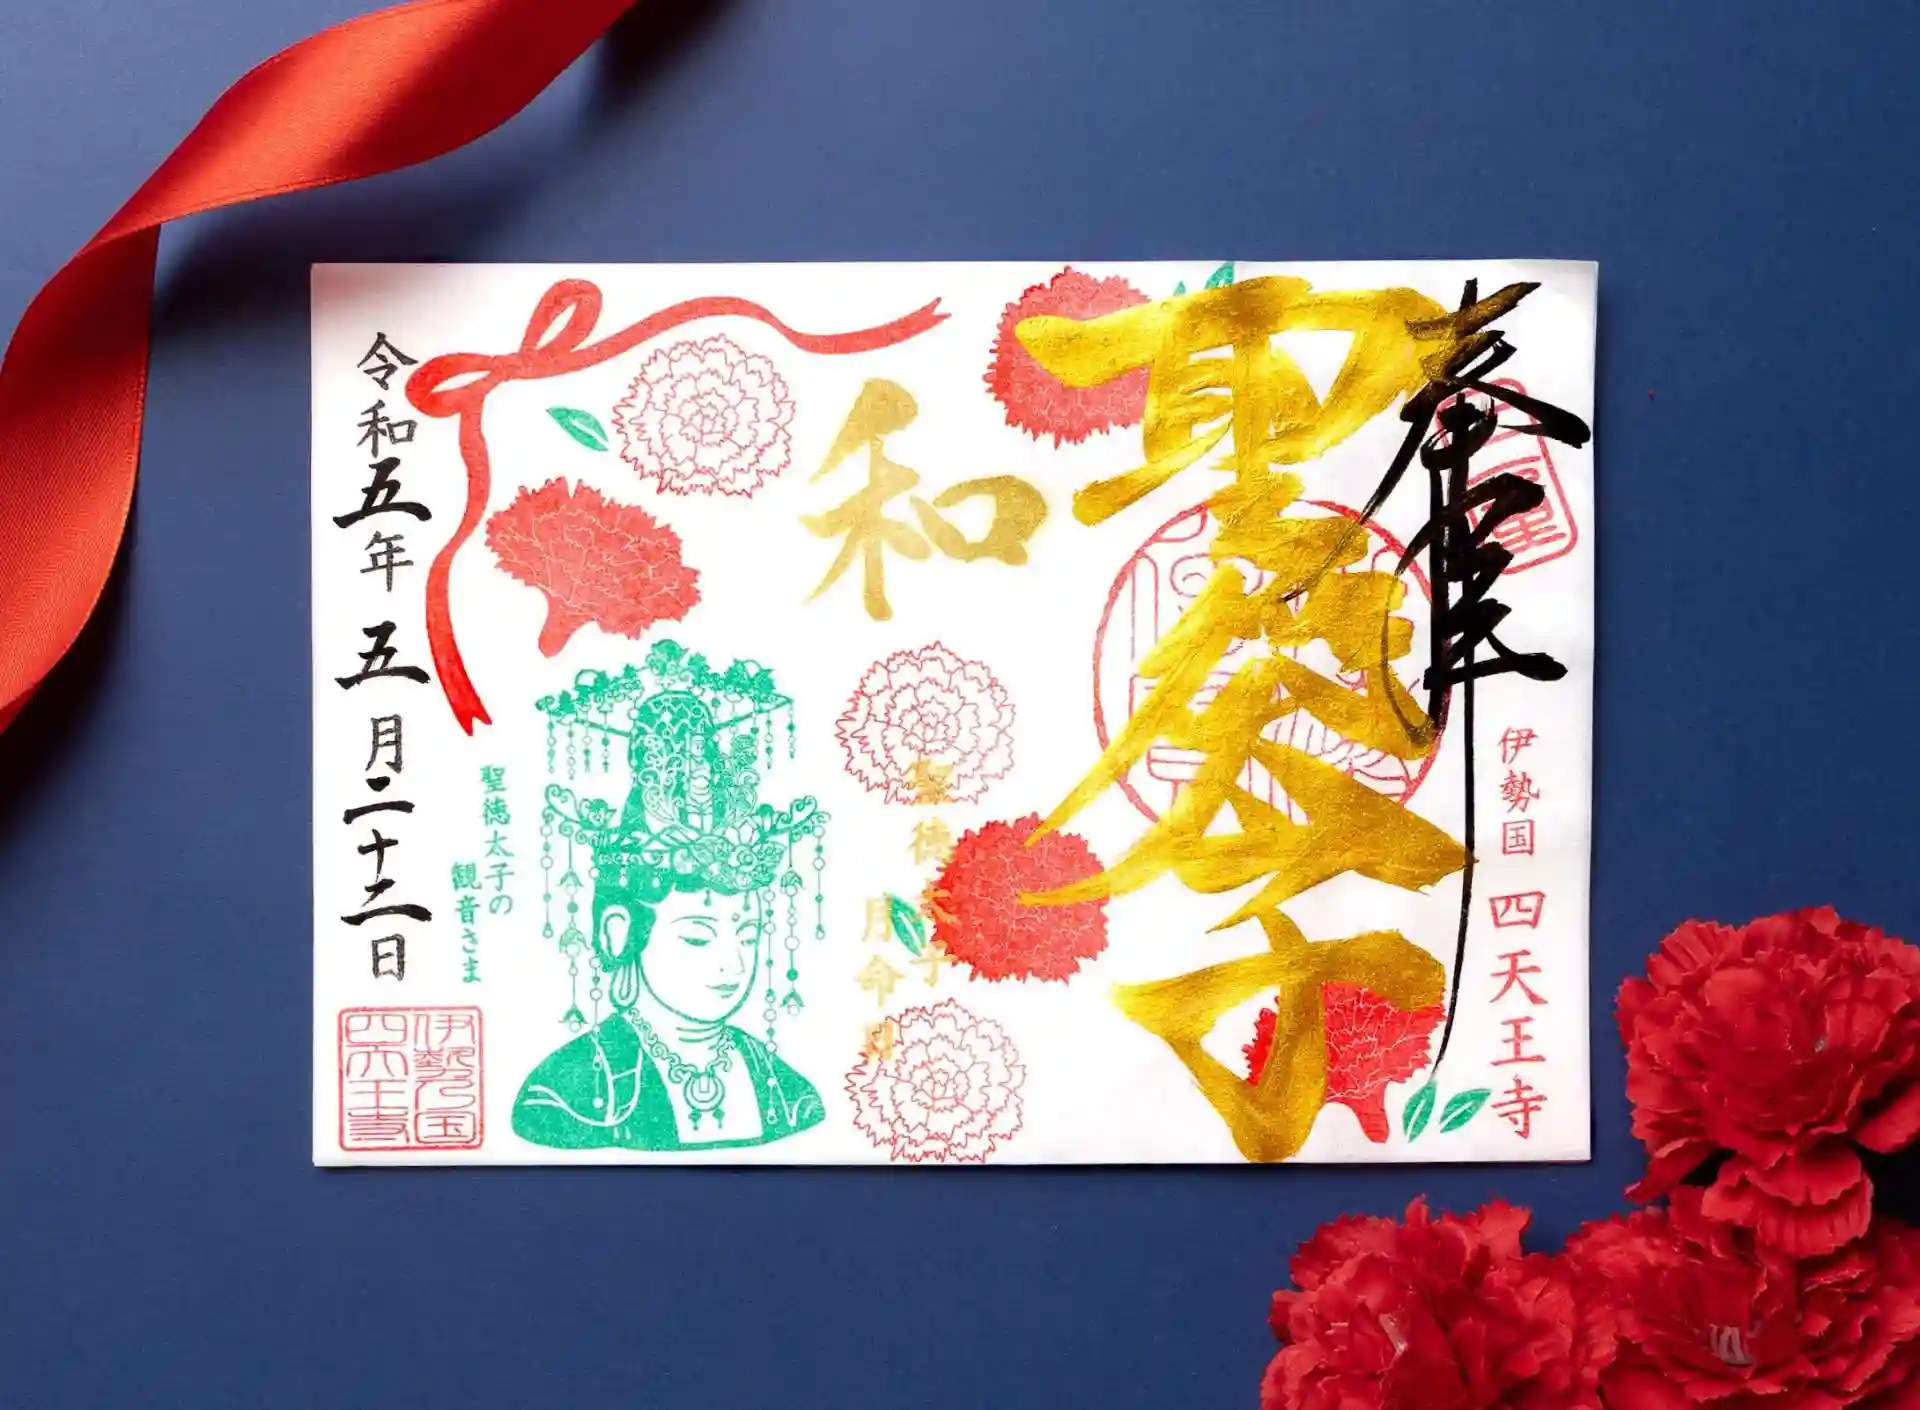 奉拝
伊勢国 四天王寺
聖徳太子
和
聖徳太子
月命日
聖徳太子の
観音さま
令和五年 五月二十二日
伊勢之国
四天王寺